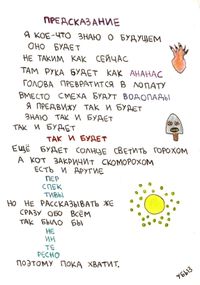 ПРЕДСКАЗАНИЕ
Я КОЕ-ЧТО ЗНАЮ О БУДУЩЕМ
ОНО БУДЕТ
НЕ ТАКИМ КАК СЕЙЧАС
ТАМ РУКА БУДЕТ КАК АНАНАС
ГОЛОВА ПРЕВРАТИТСЯ В ЛОПАТУ
ВМЕСТО СМЕХА БУДУТ ВОДОПАДЫ
Я ПРЕДВИЖУ ТАК И БУДЕТ
ЗНАЮ ТАК И БУДЕТ
ТАК И БУДЕТ
ТАК И БУДЕТ
ЕЩЁ БУДЕТ СОЛНЦЕ СВЕТИТЬ ГОРОХОМ
А КОТ ЗАКРИЧИТ СКОМОРОХОМ
ЕСТЬ И ДРУГИЕ
ПЕР
СПЕК
ТИВЫ
НО НЕ РАССКАЗЫВАТЬ ЖЕ
СРАЗУ ОБО ВСЁМ
ТАК БЫЛО БЫ
НЕ
ИН
ТЕ
РЕСНО
ПОЭТОМУ ПОКА ХВАТИТ.